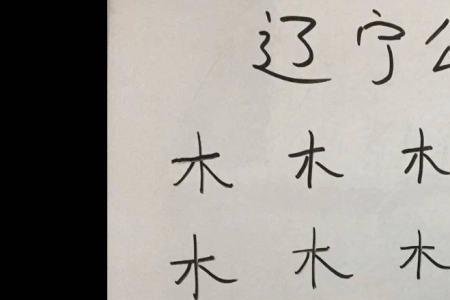 辽宁
木木木
木木木